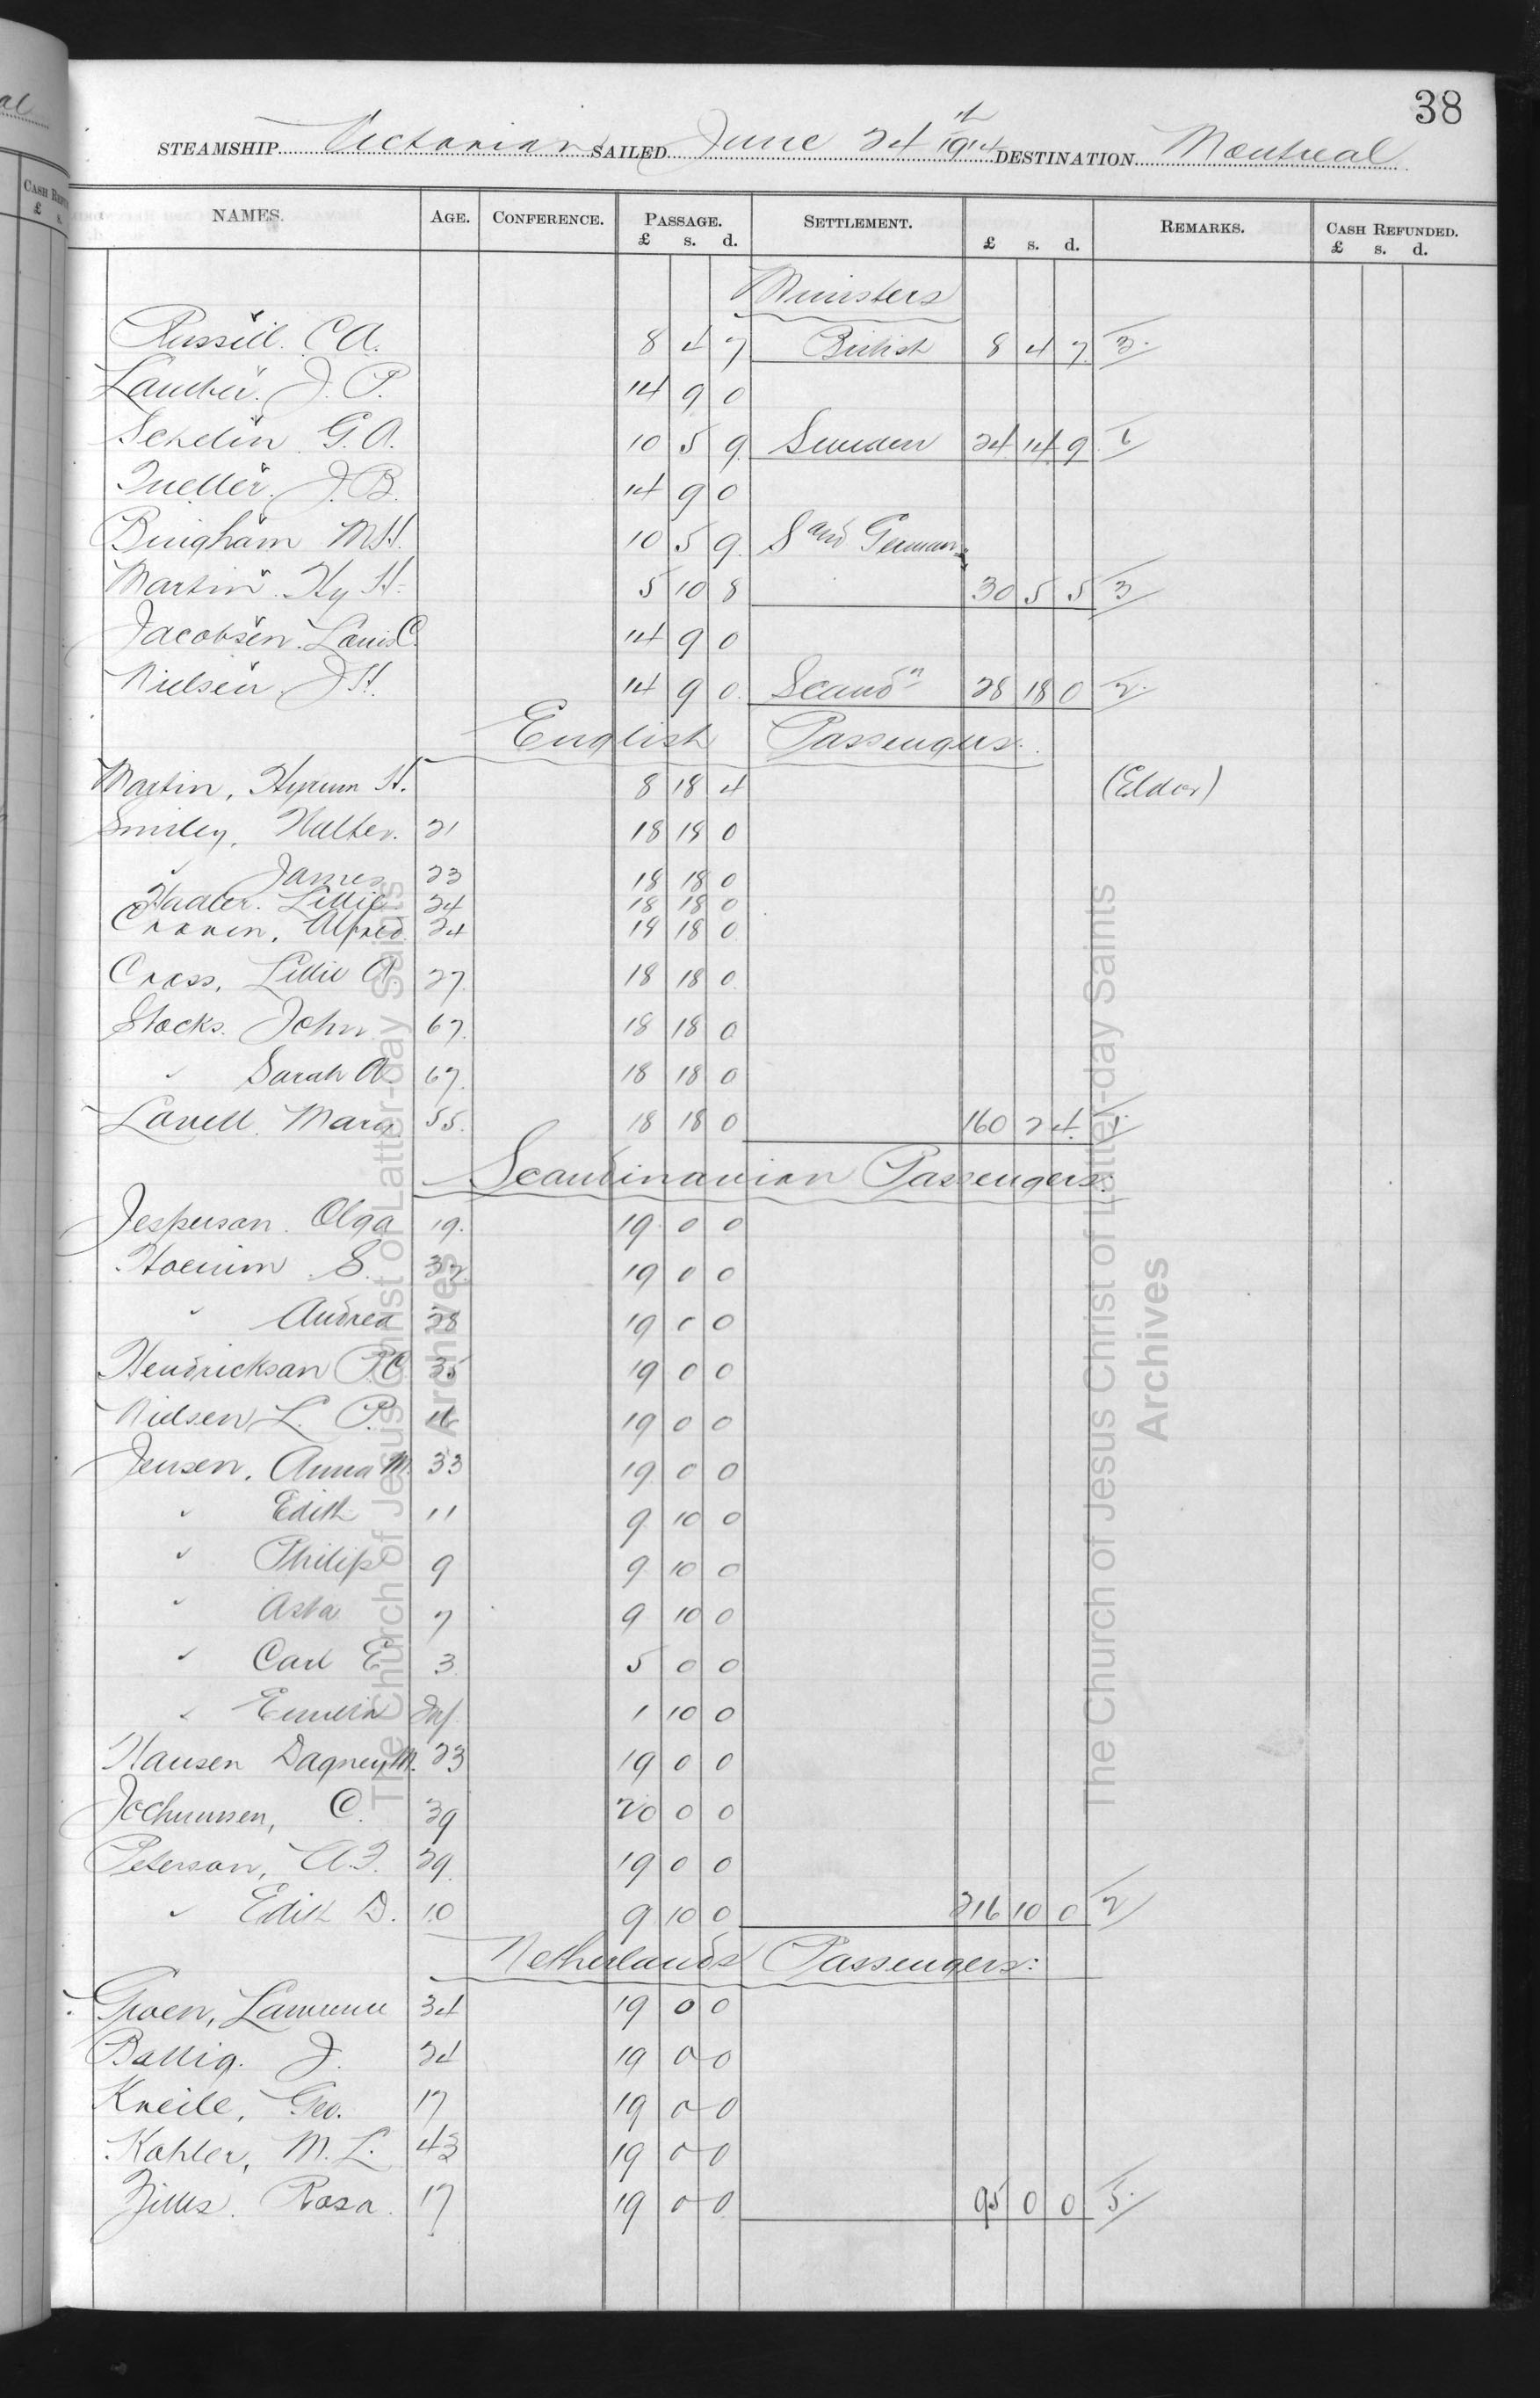 38
STEAMSHIP Victorian SAILED June 24th 1914 DESTINATION Montreal
NAMES. AGE. CONFERENCE. PASSAGE. SETTLEMENT. REMARKS. CASH REFUNDED.
£ s. d. £ s. d. £ s. d.
Ministers
Russell. C A. 8 4 7 British 8 4 7 3
J. P. 14 9 0
G. A. 10 5 9 Sweden 24 14 9 1
Tueller. J. B. 14 9 0
Bingham M H. 10 5 9 S and German
Martin. Hy H. 5 10 8 30 5 5 3
Jacobsen. Louis C. 14 9 0
Nielsen J H. 14 9 0 Scandn 28 18 0 2
English Passengers.
Martin, Hyrum H. 8 18 4 (Elder)
Smiley, Walter. 21 18 18 0
" James 23 18 18 0
Lillie 24 18 18 0
Craven, Alfred 24 18 18 0
Cross, Lillie A 27 18 18 0
Stocks. John 67. 18 18 0
" Sarah A. 67. 18 18 0
Lovell. Mary 55. 18 18 0 160 2 4 1
Scandinavian Passengers.
Jesperson. Olga 19. 19 0 0
S. 32 19 0 0
" Andrea 28 19 0 0
Hendrickson P. C. 35 19 0 0
Nielsen L. P. 16 19 0 0
Jensen, Anna M. 33 19 0 0
" Edith 11 9 10 0
" Philip 9 9 10 0
" Asta 7 9 10 0
" Carl E 3 5 0 0
" Inf 1 10 0
Hansen Dagney M. 23 19 0 0
C. 39 20 0 0
Peterson, A. F. 29. 19 0 0
" Edith D. 10 9 10 0 216 10 0 2
Netherlands Passengers:
Groen, 34 19 0 0
J. 24 19 0 0
Kneile, Geo. 17 19 0 0
Kohler, M. L. 43 19 0 0
Rosa 17 19 0 0 95 0 0 5
The Church of Jesus Christ of Latter-day Saints
Archives
The Church of Jesus Christ of Latter-day Saints
Archives